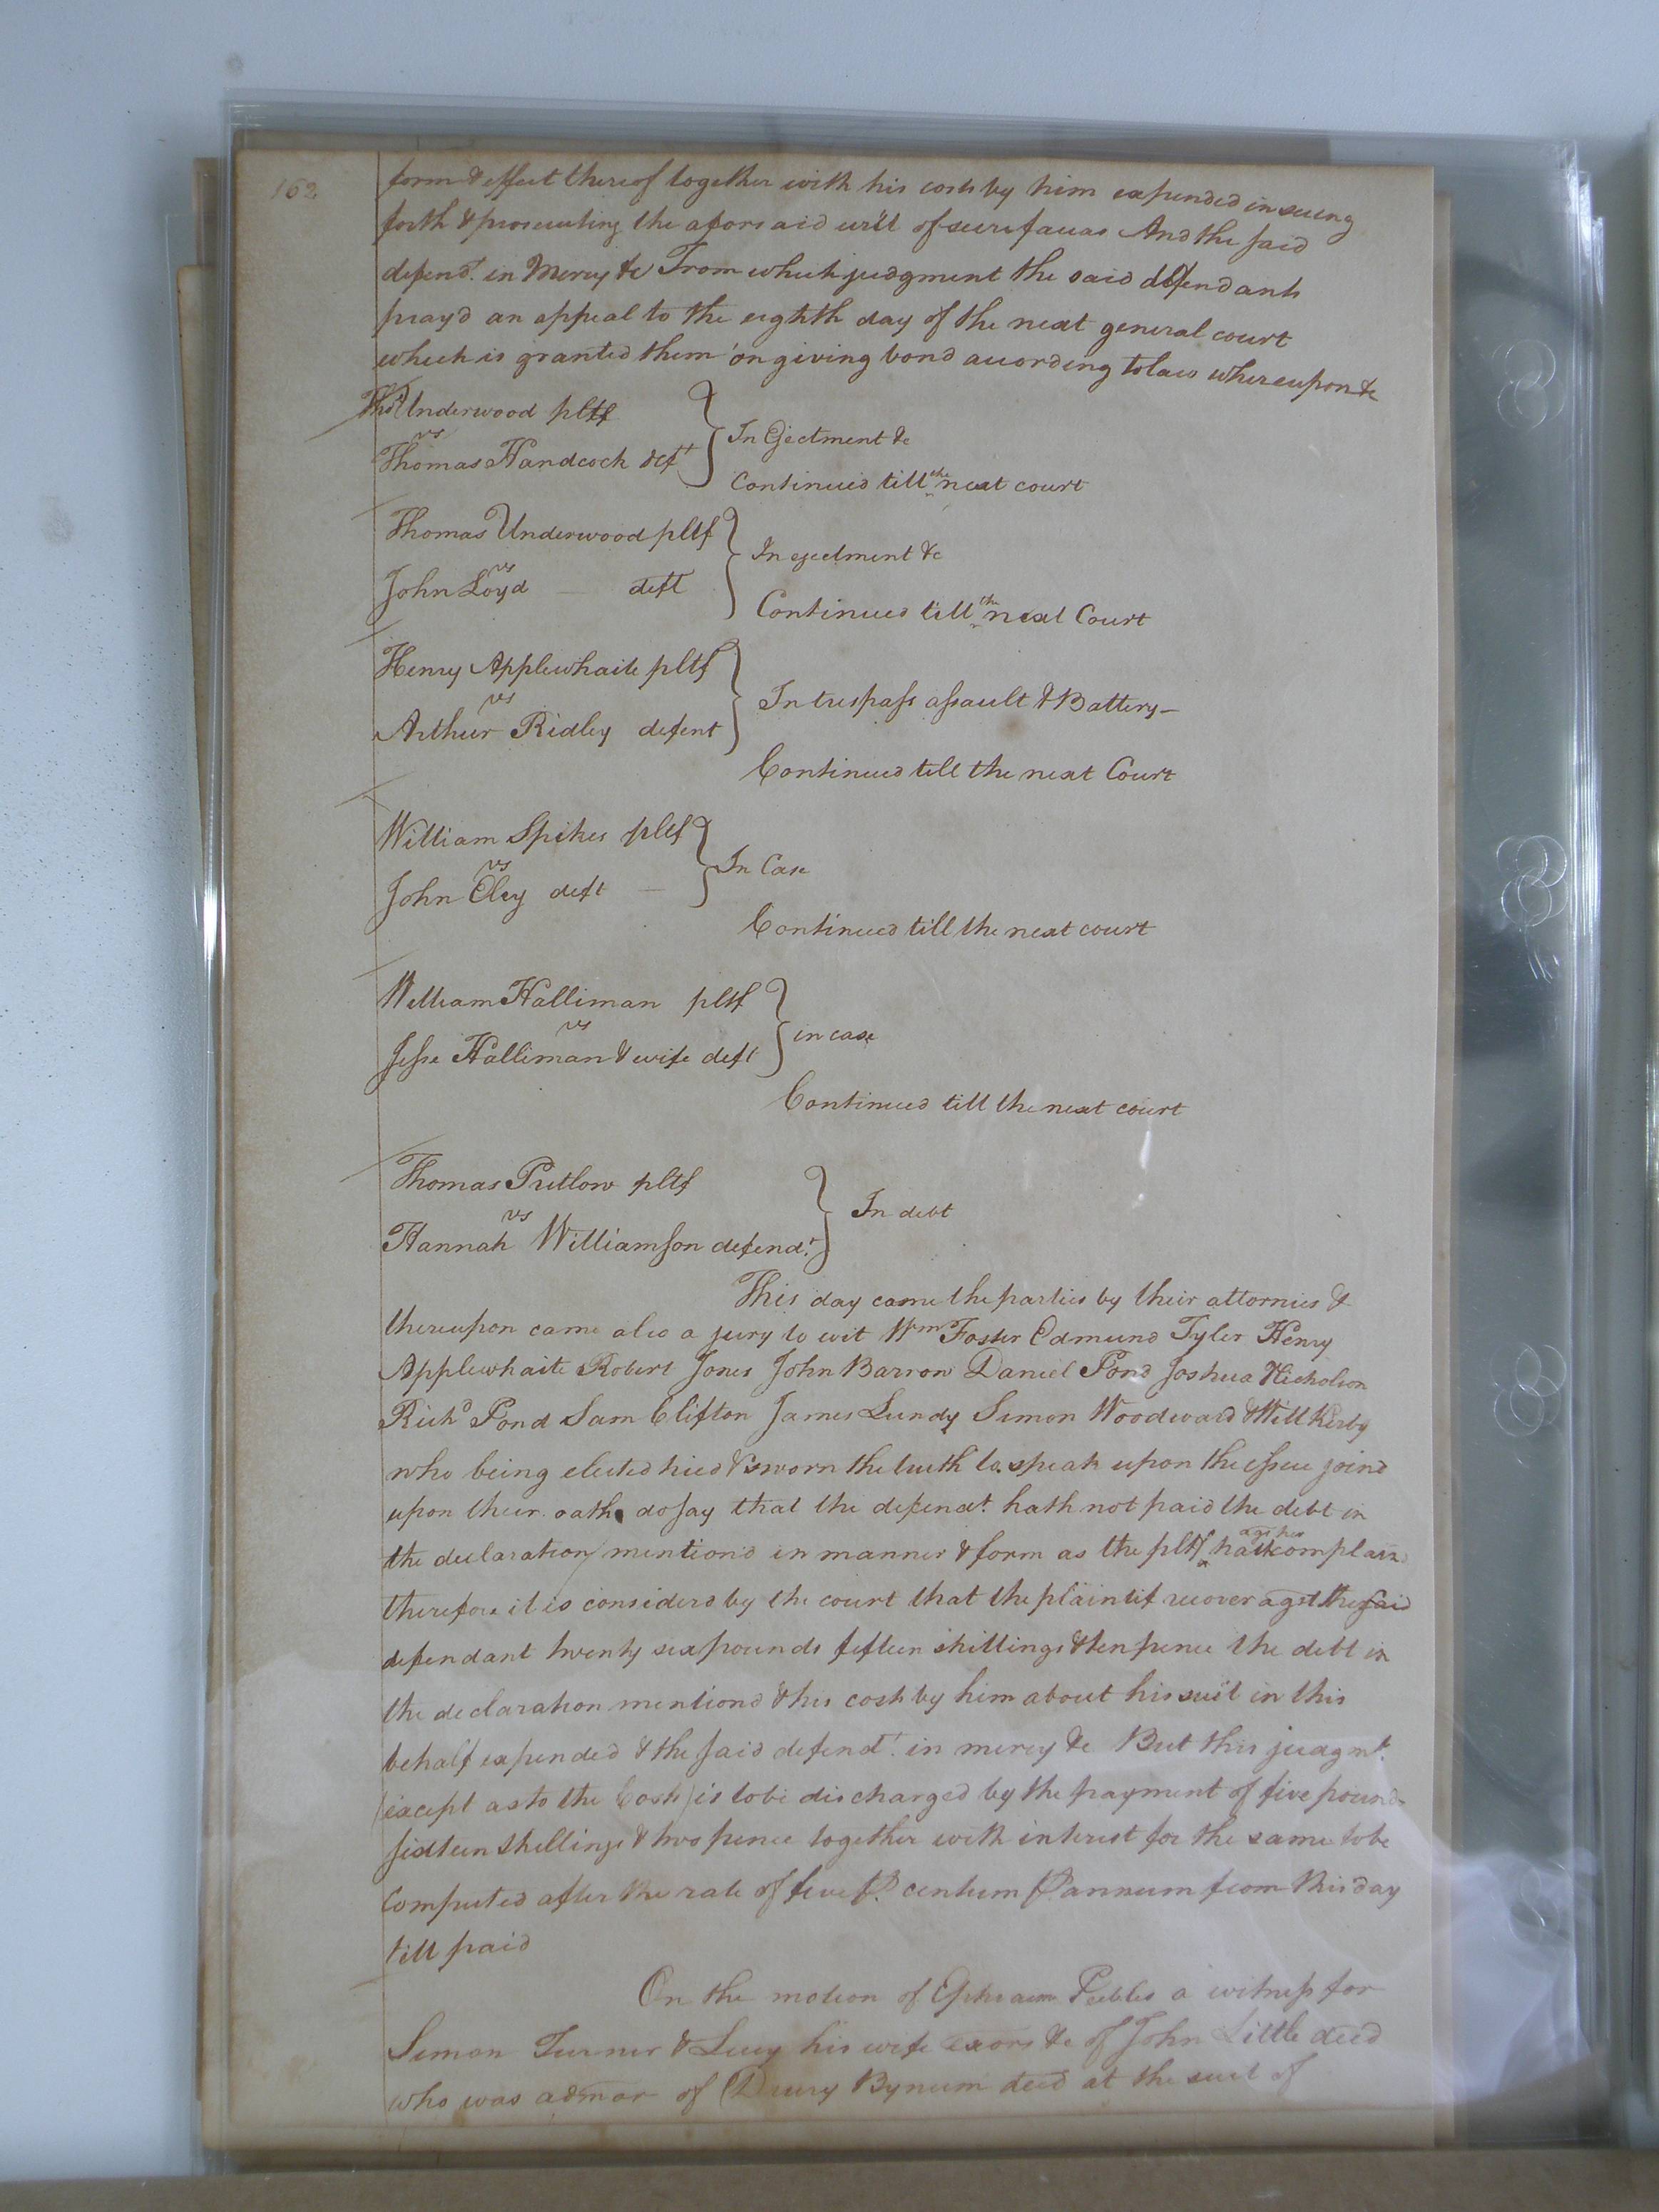 162
form & effect thereof together with his costs by him expended in sueing
forth & prosecuting the aforsaid writ of scire facias And the said
defendt. in Mercy &c From which judgment the said defendants
pray'd an appeal to the eighth day of the next general court
which is granted them on giving bond according to law whereupon &c
Thos Underwood pltf
vs
Thomas Handcock deft
In Ejectment &c
Continued till the next court
Thomas Underwood pltf
vs
John Loyd deft
In ejectment &c
Continued till the next Court
Henry Applewhaite pltf
vs
Arthur Ridley defent
In trespass assault & Battery
Continued till the next Court
William Spikes pltf
vs
John Eley deft
In Case
Continued till the next court
William Halliman pltf
vs
Jesse Halliman & wife deft
in case
Continued till the next court
Thomas Pretlow pltf
vs
Hannah Williamson defendt.
In debt
This day came the parties by their attornies &
thereupon came also a jury to wit Wm Foster Edmund Tyler Henry
Applewhaite Robert Jones John Barrow Daniel Pond Joshua Nicholson
Richd Pond Sam Clifton James Lundy Simon Woodward & Will Kirby
who being elected tried & sworn the truth to speak upon the issue joind
upon their oath do say that the defendt. hath not paid the debt in
the declaration mention'd in manner & form as the pltf agt her hath complain
therefore it is considerd by the court that the plaintif recover agst the said
defendant twenty six pounds fifteen shillings & ten pence the debt in
the declaration mentiond & his costs by him about his suit in this
behalf expended & the said defendt. in mercy &c But this judgmt.
(except as to the Costs) is to be discharged by the payment of five pounds
sixteen shillings & two pence together with interest for the same to be
Computed after the rate of five P. centum P annum from this day
till paid
On the motion of Ephraim Peebles a witness for
Simon Turner & Lucy his wife exors &c of John Little decd
who was admor of Drury Bynum decd at the suit of